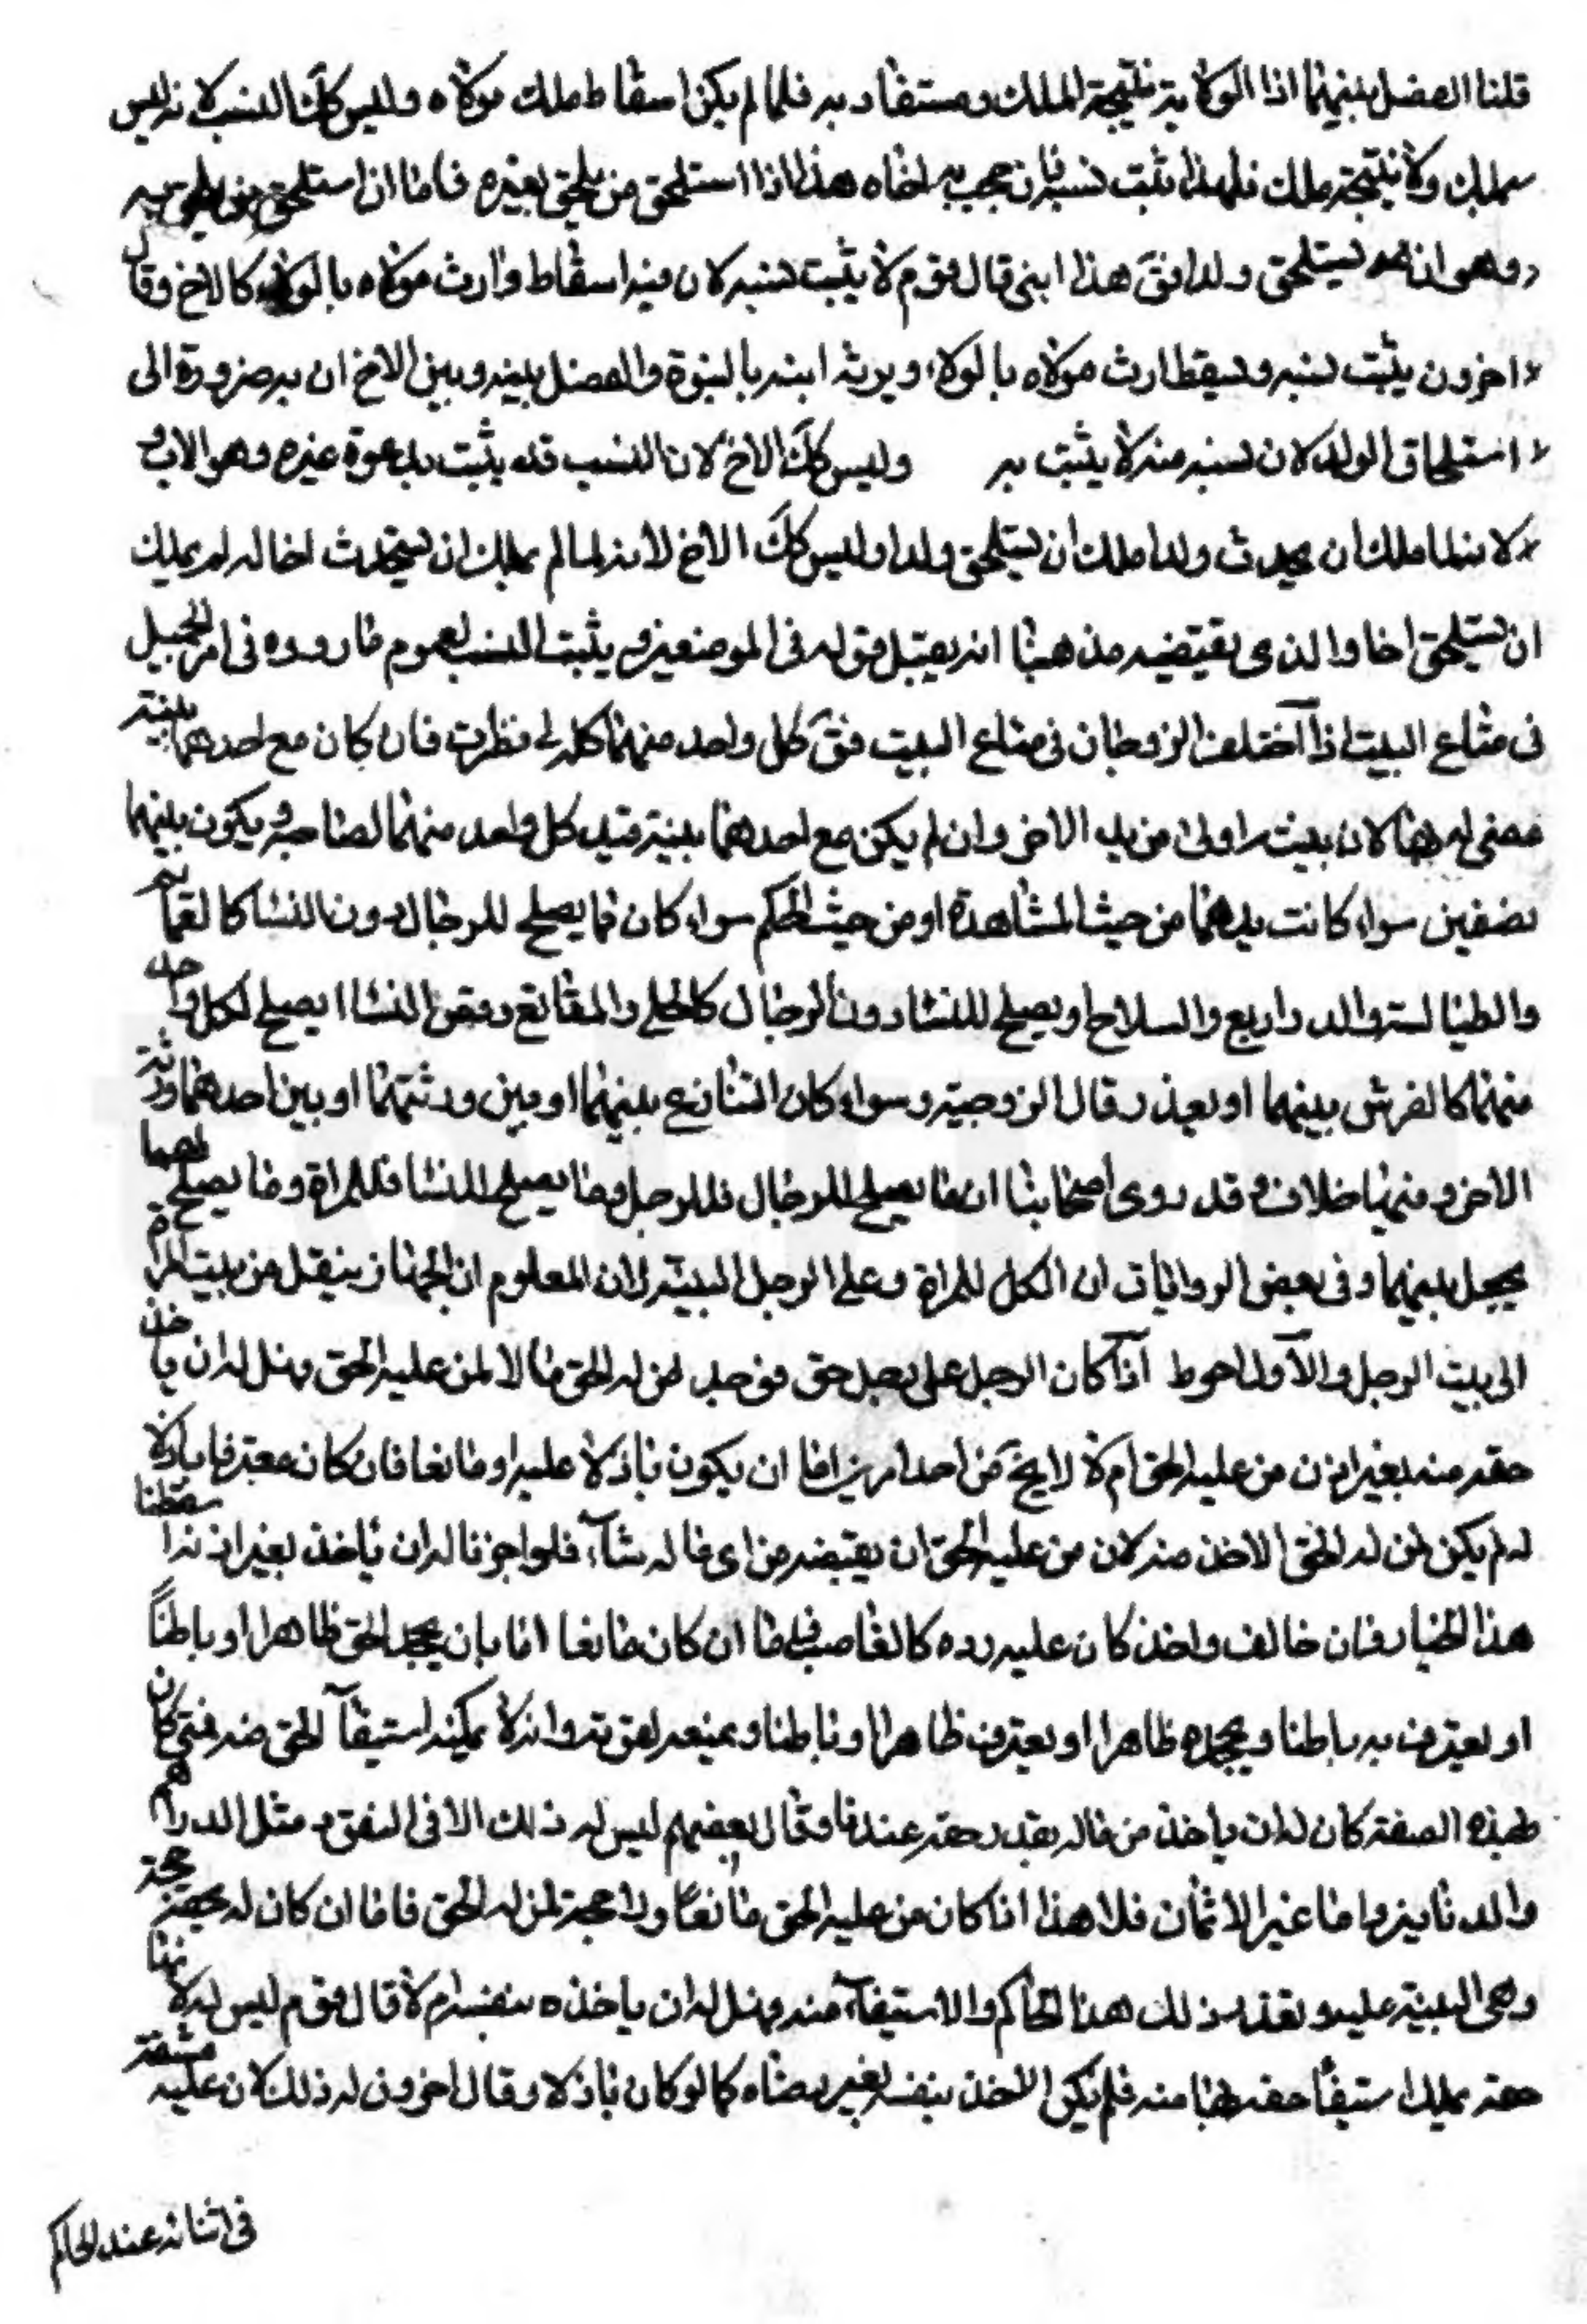 قلنا الفصل بينهما اذا الولاية نتيجة الملك ومستفاد به فلما لم يكن اسقاط ملك مولاه وليس كك النسب لانه ليس
بملك ولا نتيجة ملك فلهذا يثبت نسبه بان حجب به اخاه هذا اذا استلحق من يلحق بغيره فاما ان استلحق من يلحق به
وهو ان يستلحق ولدا فق هذا ابنى قال قوم لا يثبت نسبه لان فيه اسقاط وارث مولاه بالولاء كالاخ وقال
اخرون يثبت نسبه ويسقط ارث مولاه بالولاء ويرثه ابنه بالبنوة والفصل بينه وبين الاخ ان به ضرورة الى
استلحاق الولد لان نسبه منه لا يثبت به وليس كك الاخ لان النسب قد يثبت بدعوة غيره وهو الاب و
لانه لما ملك ان يحدث ولدا ملك ان يستلحق ولدا وليس كك الاخ لانه لما لم يملك ان يستحدث اخا له لم يملك
ان يستلحق اخا والذى يقتضيه مذهبنا انه يقبل قوله فى الموضعين ويثبت النسب لعموم ما رووه فى امر الحميل
فى متاع البيت اذا اختلف الزوجان فى متاع البيت فق كل واحد منهما كله لى نظرت فان كان مع احدهما بينة
قضى له بها لان بينته اولى من يد الاخر وان لم يكن مع احدهما بينة فيد كل واحد منهما لصاحبه ويكون بينهما
نصفين سواء كانت يدهما من حيث المشاهدة او من حيث الحكم سواء كان مما يصلح للرجال دون النسا كالعمائم
والطيالسة والدراريع والسلاح او يصلح للنسا دون الرجال كالحلى والمقانع وقمص النسا او يصلح لكل واحد
منهما كالفرش بينهما او بعد زوال الزوجية وسواء كان التنازع بينهما او بين ورثتهما او بين احدهما وورثة
الاخر ومنها خلاف وقد روى اصحابنا ان ما يصلح للرجال فللرجل وما يصلح للنسا فللمراة وما يصلح لهما
يجعل بينهما وفى بعض الروايات ان الكل للمراة وعلى الرجل البينة لان المعلوم ان الجهاز ينقل من بيت المراة
الى بيت الرجل والاول احوط اذا كان الرجل على رجل حق فوجد من له الحق مالا لمن عليه الحق وهل له ان ياخذ
حقه منه بغير اذن من عليه الحق ام لا لا يخ من احد امرين اما ان يكون باذلا عليه او مانعا فان كان معترفا باذلا
له لم يكن لمن له الحق الاخذ منه لان من عليه الحق ان يقبضه من اى ماله شاء فلو اجزنا له ان ياخذ بغير اذنه اسقطنا
هذا الخيار فان خالف واخذ كان عليه رده كالغاصب فاما ان كان مانعا اما بان يجحد الحق ظاهرا او باطنًا
او يعترف به باطنا ويجحده ظاهرا او يعترف ظاهرا وباطنا ويمنعه لقوته وانه لا يمكنه استيفاء الحق منه فمتى كان
بهذه الصفة كان له ان ياخذ من ماله بقدر حقه عندنا وقال بعضهم ليس له ذلك الا فى النقود مثل الدراهم
والدنانير واما غير الاثمان فلا هذا اذا كان من عليه الحق مانعًا ولا حجة لمن له الحق فاما ان كان له بحقه حجة
وهى البينة عليه ويقدر بذلك هذا الحاكم والاستيفاء منه وهل له ان ياخذه بنفسه ام لا قال قوم ليس له لانا
حقه يملك استيفاء حقه منه فلم يكن الاخذ بنفسه بغير رضاه كما لو كان باذلا وقال اخرون له ذلك لان عليه مشقة
فى اثباته عند الحاكم